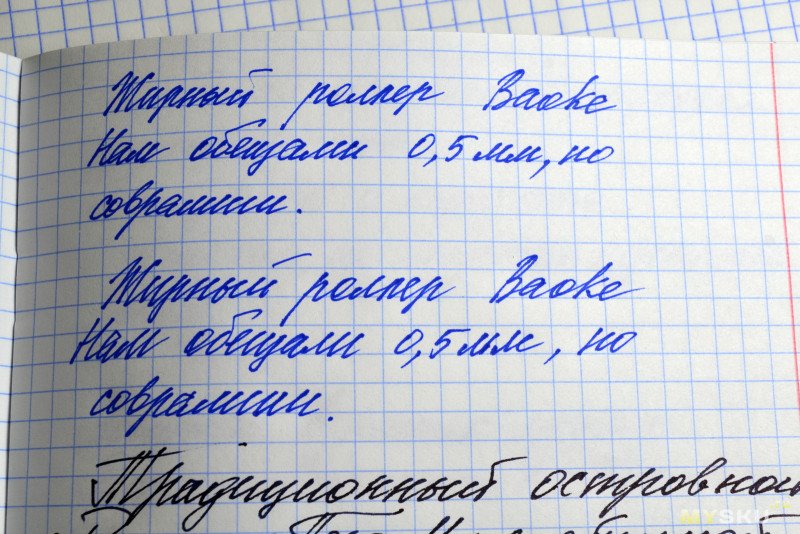 Жирный роллер Baoke
Нам обещали 0,5 мм, но
соврамши.
Жирный роллер Baoke
Нам обещали 0,5 мм, но
соврамши.
Традиционный островной
MYSKU